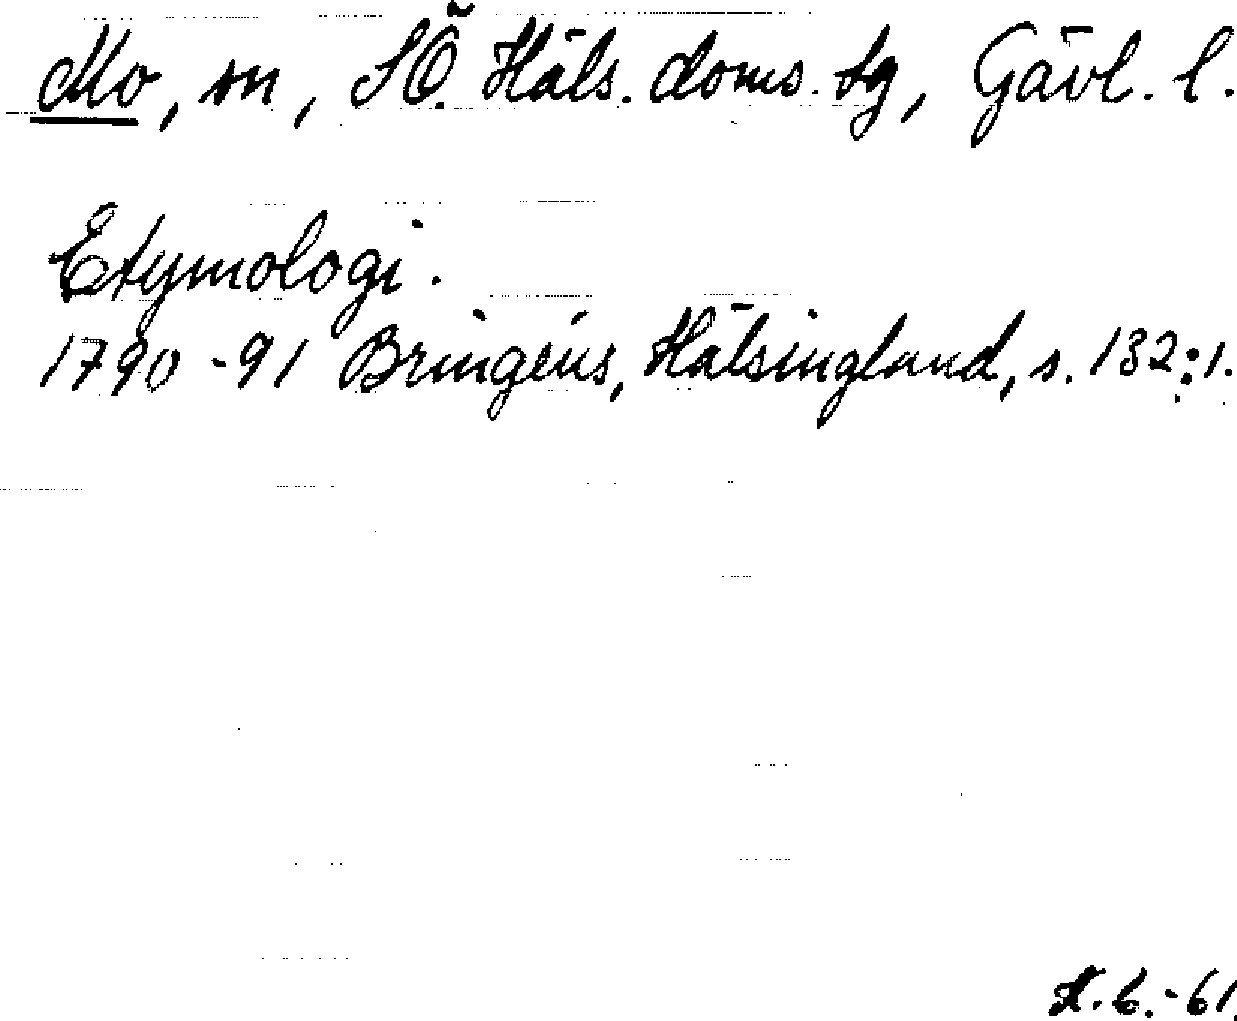 Mo, sn, SÖ. Häls. doms. tg, Gävl. l.
Etymologi.
1790-91 Bringéus, Hälsingland, s. 132:1.
-61.